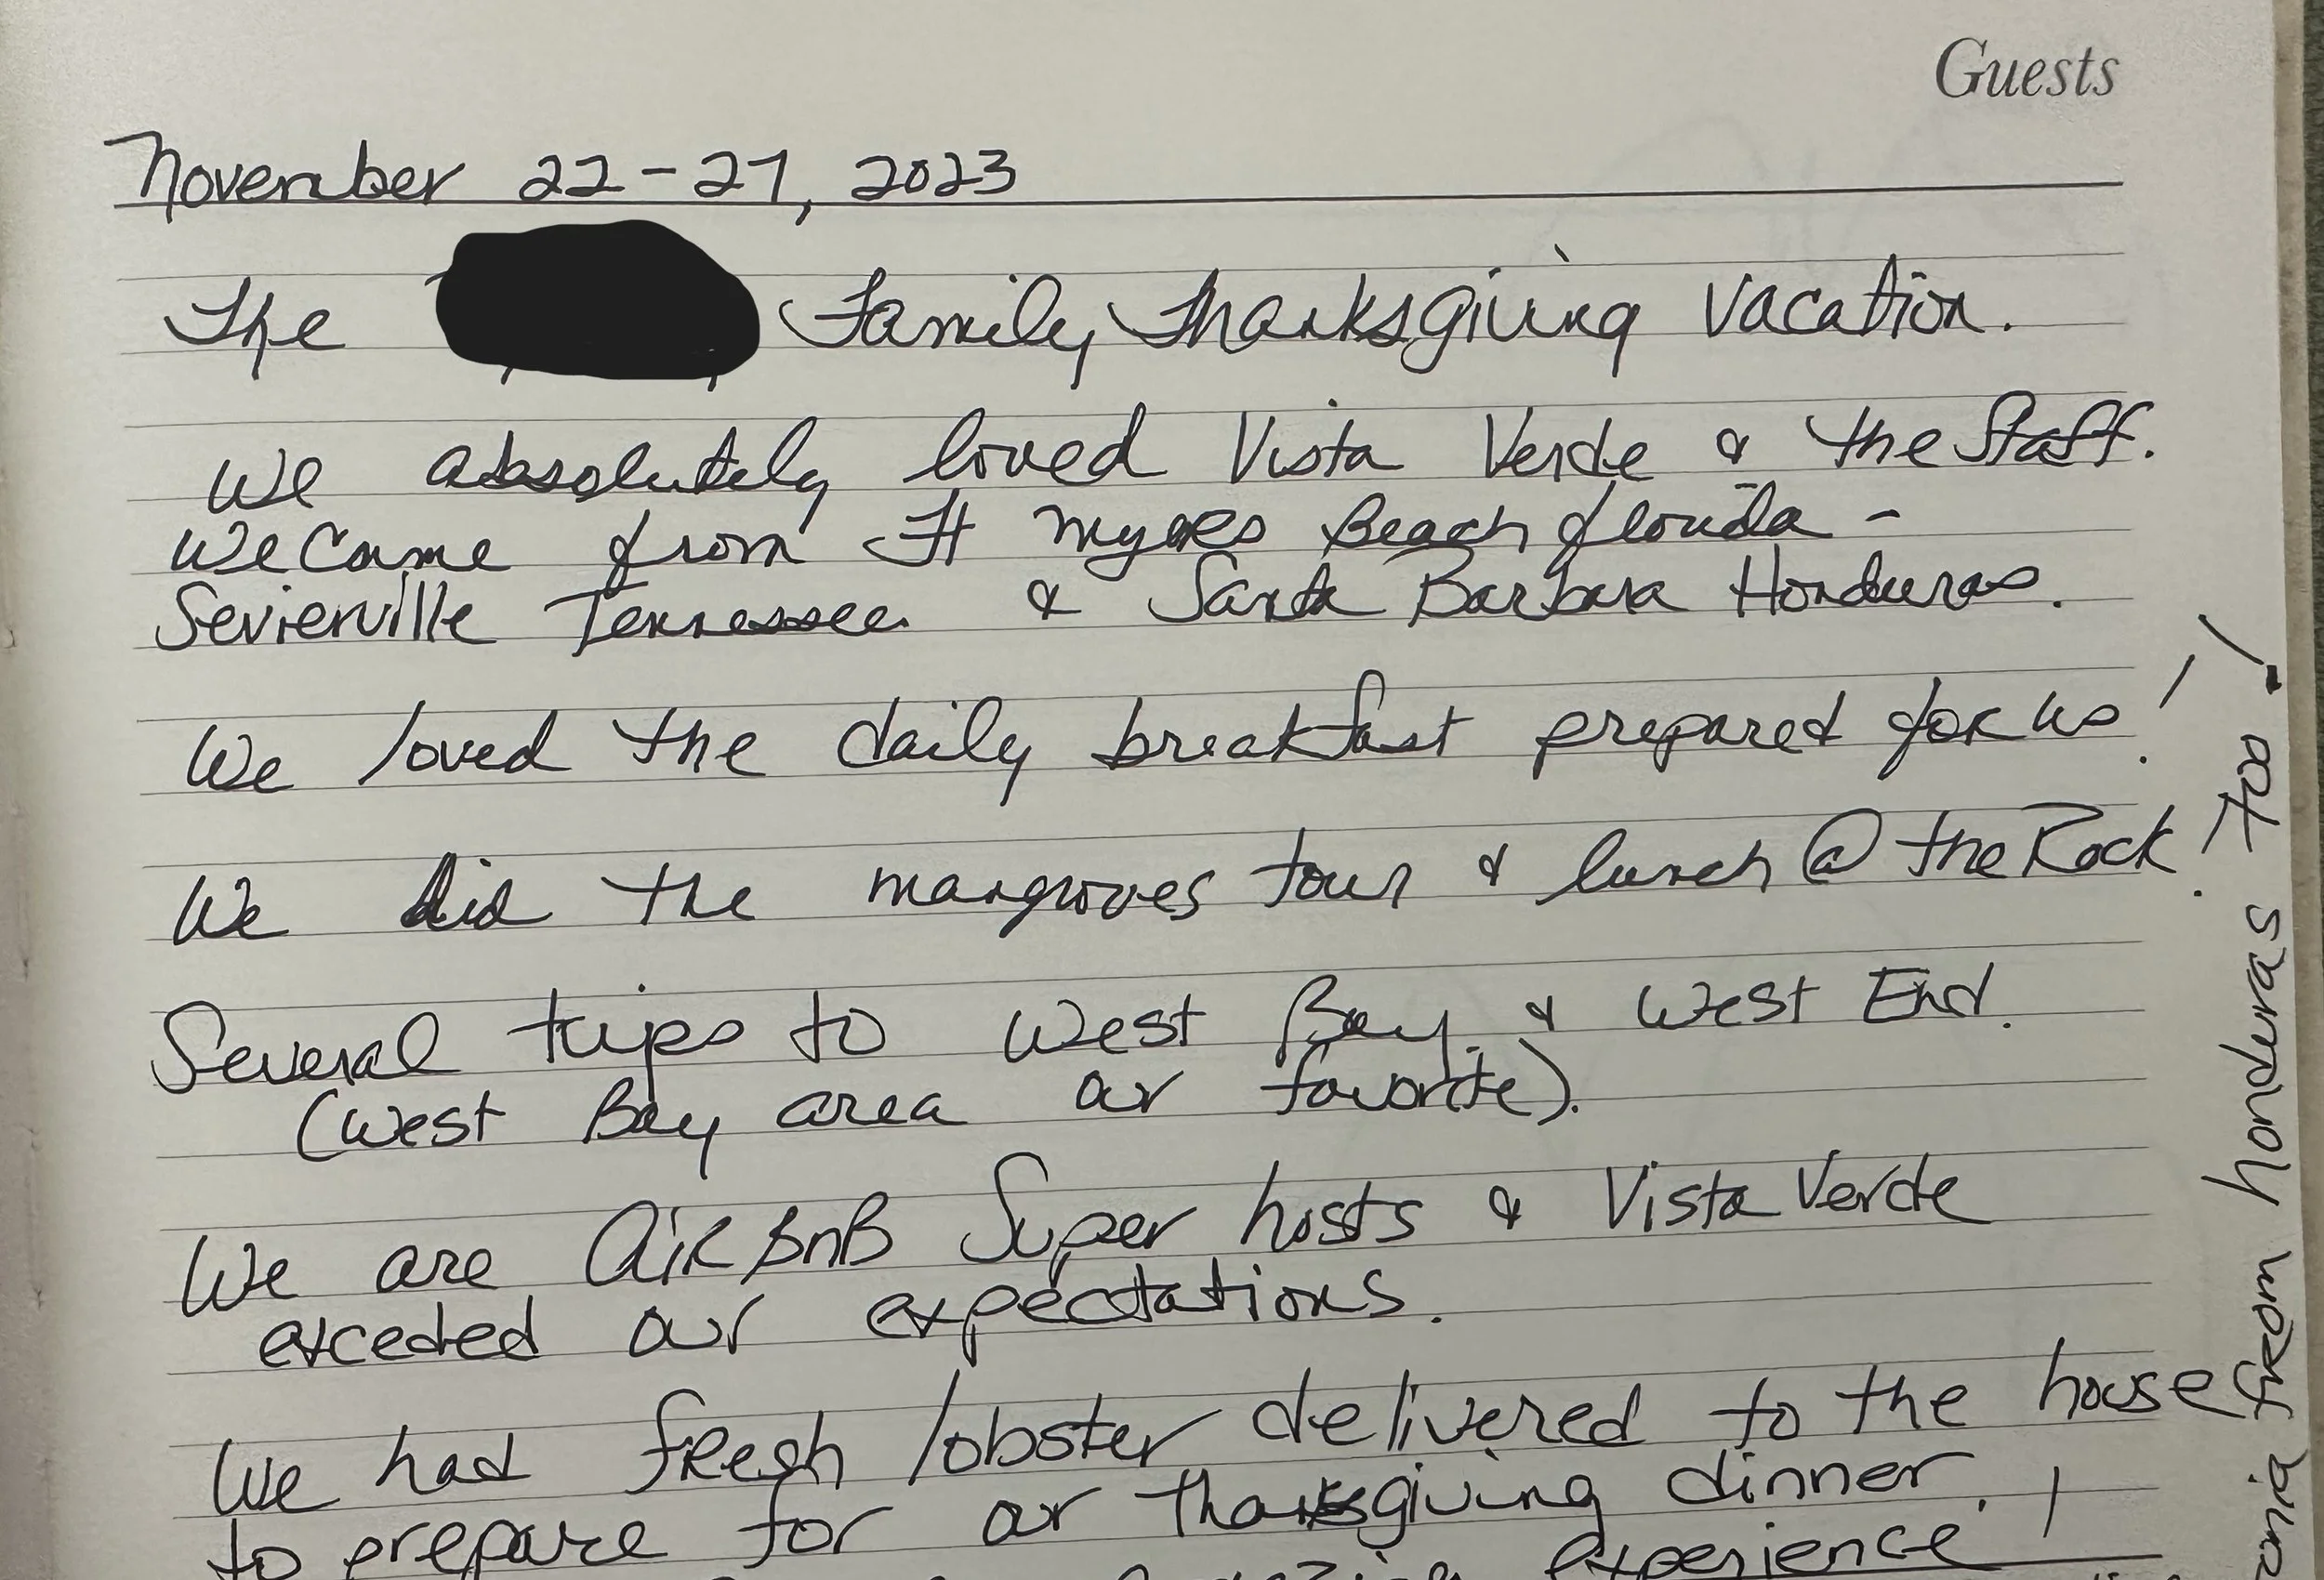 Guests
November 22-27, 2023
The Family Thanksgiving Vacation.
We absolutely loved Vista Verde & the Staff.
We came from Ft Myers Beach florida -
Sevierville Tennessee & Santa Barbara Honduras.
We loved the daily breakfast prepared for us!
We did the mangroves tour & lunch @ the Rock!
Several trips to West Bay & West End.
(West Bay area our favorite).
We are AirBnB Super hosts & Vista Verde
exceded our expectations.
We had fresh lobster delivered to the house
to prepare for our Thanksgiving dinner.
experience!
from honduras too!